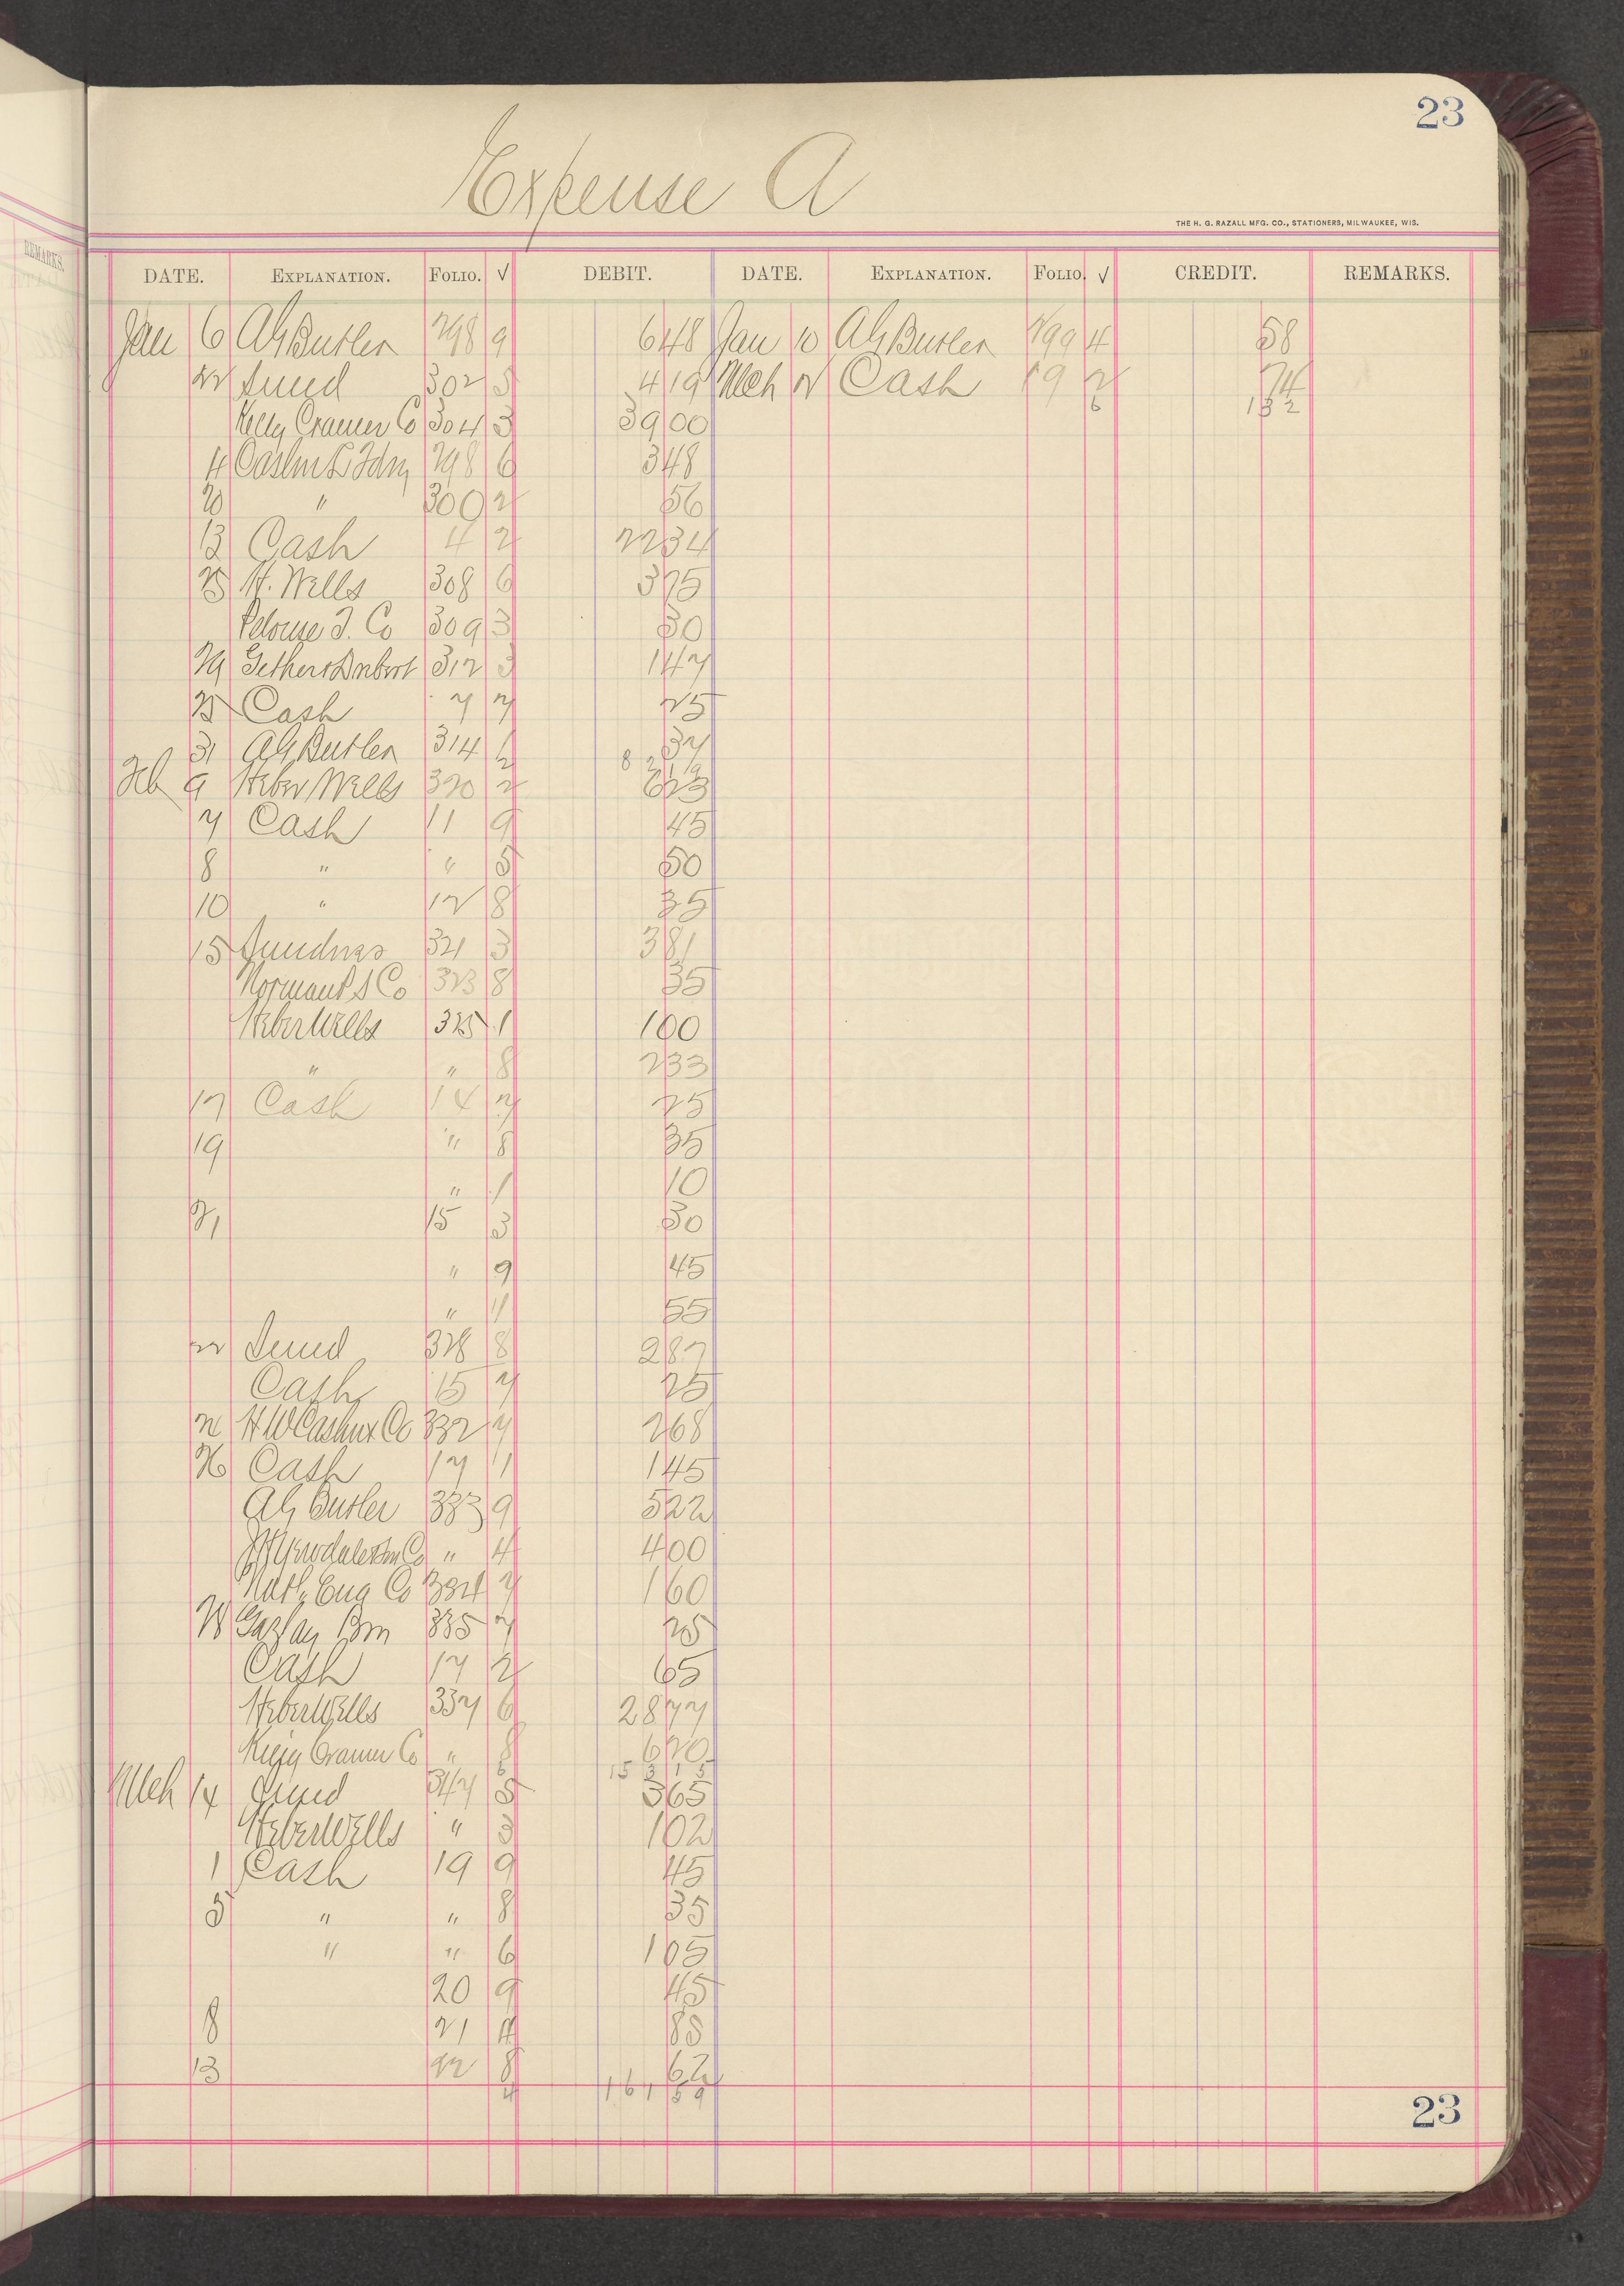 23
Expense A
THE H. G. RAZALL MFG. CO., STATIONERS, MILWAUKEE, WIS.
DATE. EXPLANATION. FOLIO. √ DEBIT. DATE. EXPLANATION. FOLIO. √ CREDIT. REMARKS.
Jan 6 AG Butler 298 9 6 48 Jan 10 AG Butler 299 4 58
22 302 5 4 19 Mch 2 Cash 19 2 74
6 1 32
Kelly Cramer Co 304 3 39 00
4 298 6 3 48
20 " 300 2 56
13 Cash 4 2 22 34
25 H. Wells 308 6 3 75
Pelouze T. Co 309 3 30
29 312 3 1 47
25 Cash 7 7 25
31 AG Butler 314 1 37
2 8 2 19
Feb 9 Heber Wells 320 2 6 23
7 Cash 11 9 45
8 " " 5 50
10 " 12 8 35
15 321 3 3 81
Norman P S Co 323 8 35
Heber Wells 325 1 1 00
" " 8 2 33
17 Cash 14 7 25
19 " 8 35
" 1 10
21 15 3 30
" 9 45
" 11 55
22 328 8 2 87
Cash 15 7 25
H W Co 332 7 2 68
26 Cash 17 1 1 45
AG Butler 333 9 5 22
Co " 4 4 00
Nat. Eng Co 334 7 1 60
28 335 7 25
Cash 17 2 65
Heber Wells 337 6 28 77
Cramer Co " 8 6 20
6 15 3 1 5
Mch 14 347 5 3 65
Heber Wells " 3 1 02
1 Cash 19 9 45
5 " " 8 35
" " 6 1 05
20 9 45
8 21 4 85
13 22 8 62
4 1 6 1 5 9
23